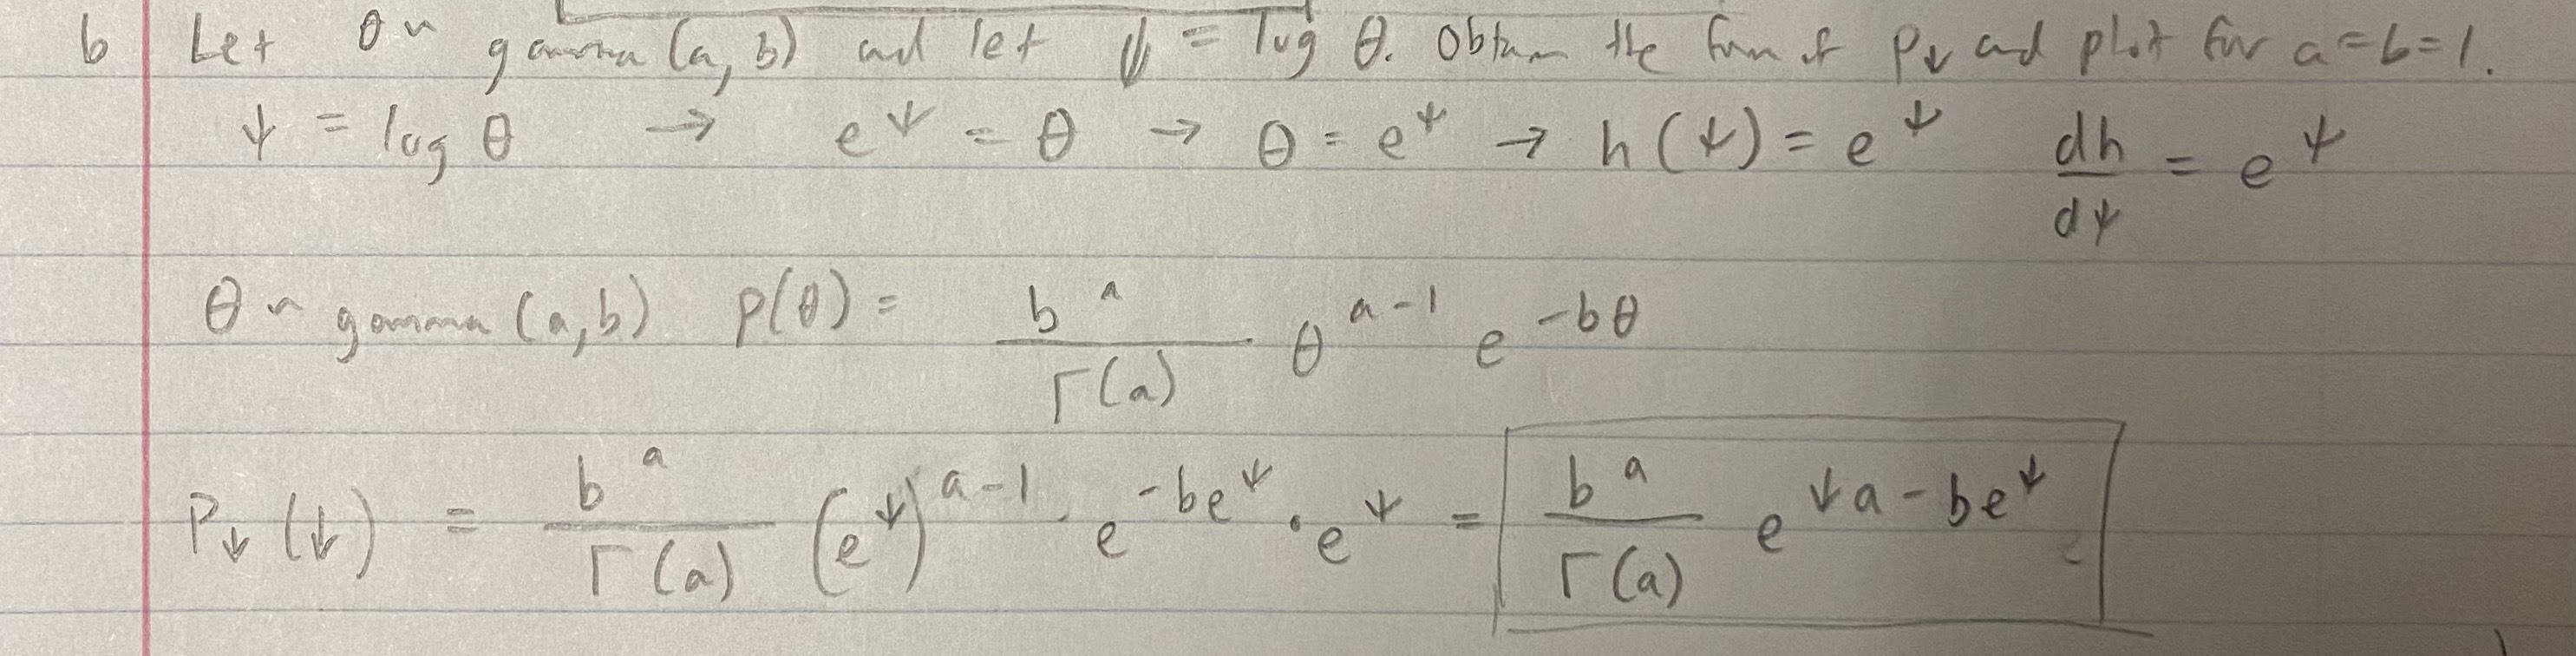 b Let θ ~ gamma (a, b) and let ψ = log θ. Obtain the form of Pψ and plot for a = b = 1.
ψ = log θ → e^ψ = θ → θ = e^ψ → h(ψ) = e^ψ dh/dψ = e^ψ
θ ~ gamma (a,b) p(θ) = b^a/Γ(a) θ^(a-1) e^(-bθ)
Pψ(ψ) = b^a/Γ(a) (e^ψ)^(a-1) · e^(-be^ψ) · e^ψ = b^a/Γ(a) e^(ψa - be^ψ)